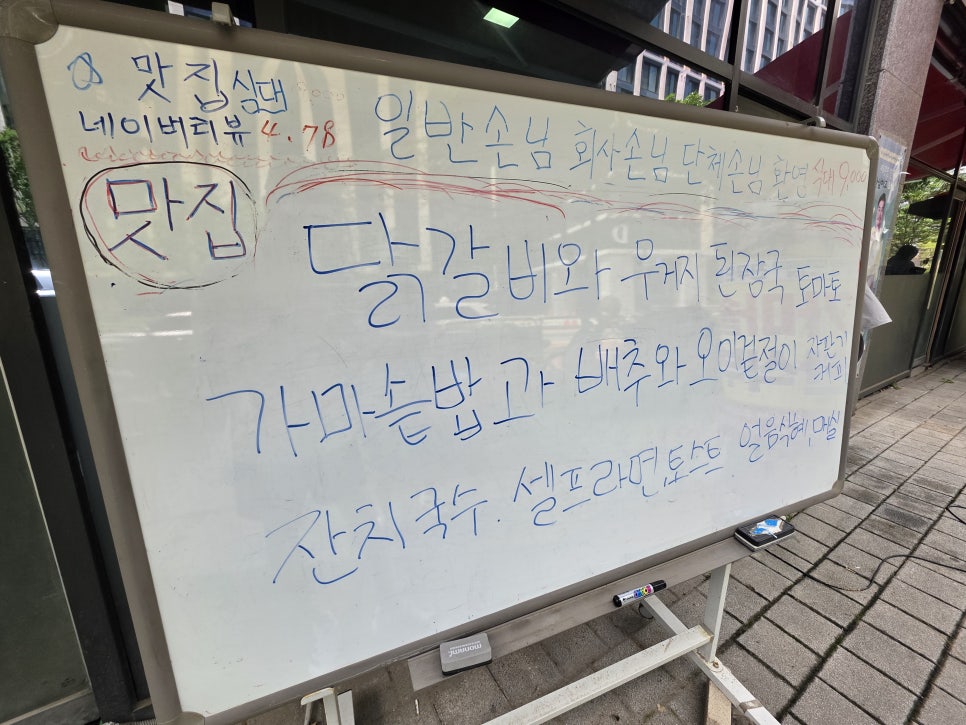 맛집식대
네이버리뷰 4.78
일반손님 회사손님 단체손님 환영 식대 9,000
맛집
닭갈비와 우거지 된장국 토마토
가마솥밥과 배추와 오이겉절이 자판기 커피
잔치국수. 셀프라면,토스트 얼음식혜, 매실
monami